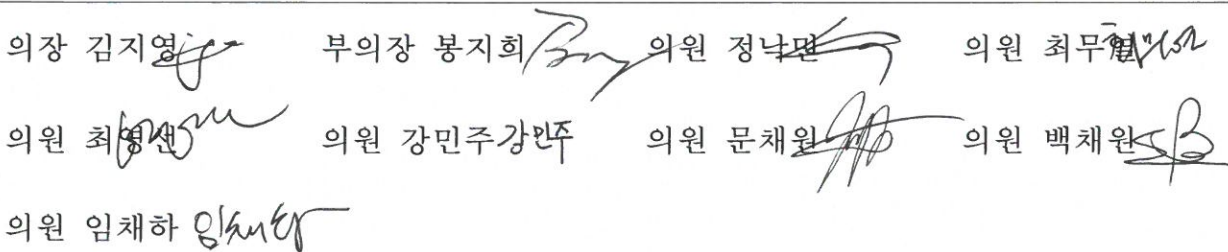 의장 김지영 부의장 봉지희 의원 정낙민 의원 최무열
의원 최영선 의원 강민주 강민주 의원 문채원 의원 백채원
의원 임채하 임채하